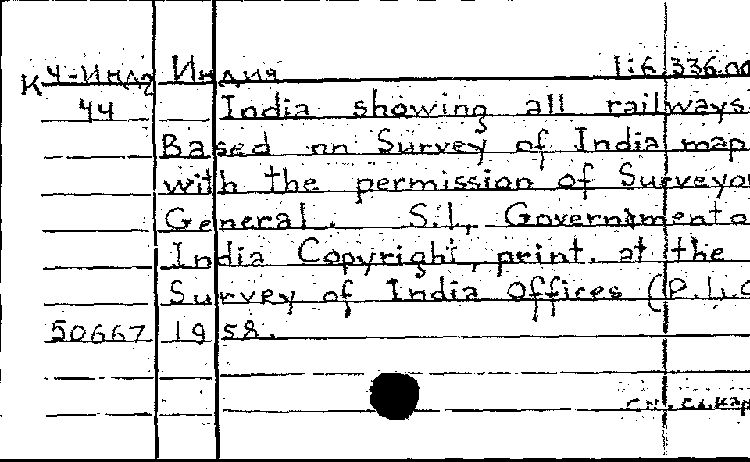 К Ч-Инд Индия 1:6.336.00
44 India showing all railways.
Based on Survey of India map
with the permission of Surveyo
General. S.l., Government o
India Copyright, print. at the
Survey of India Offices (P.L.O
50667 1958.
см. сл. кар